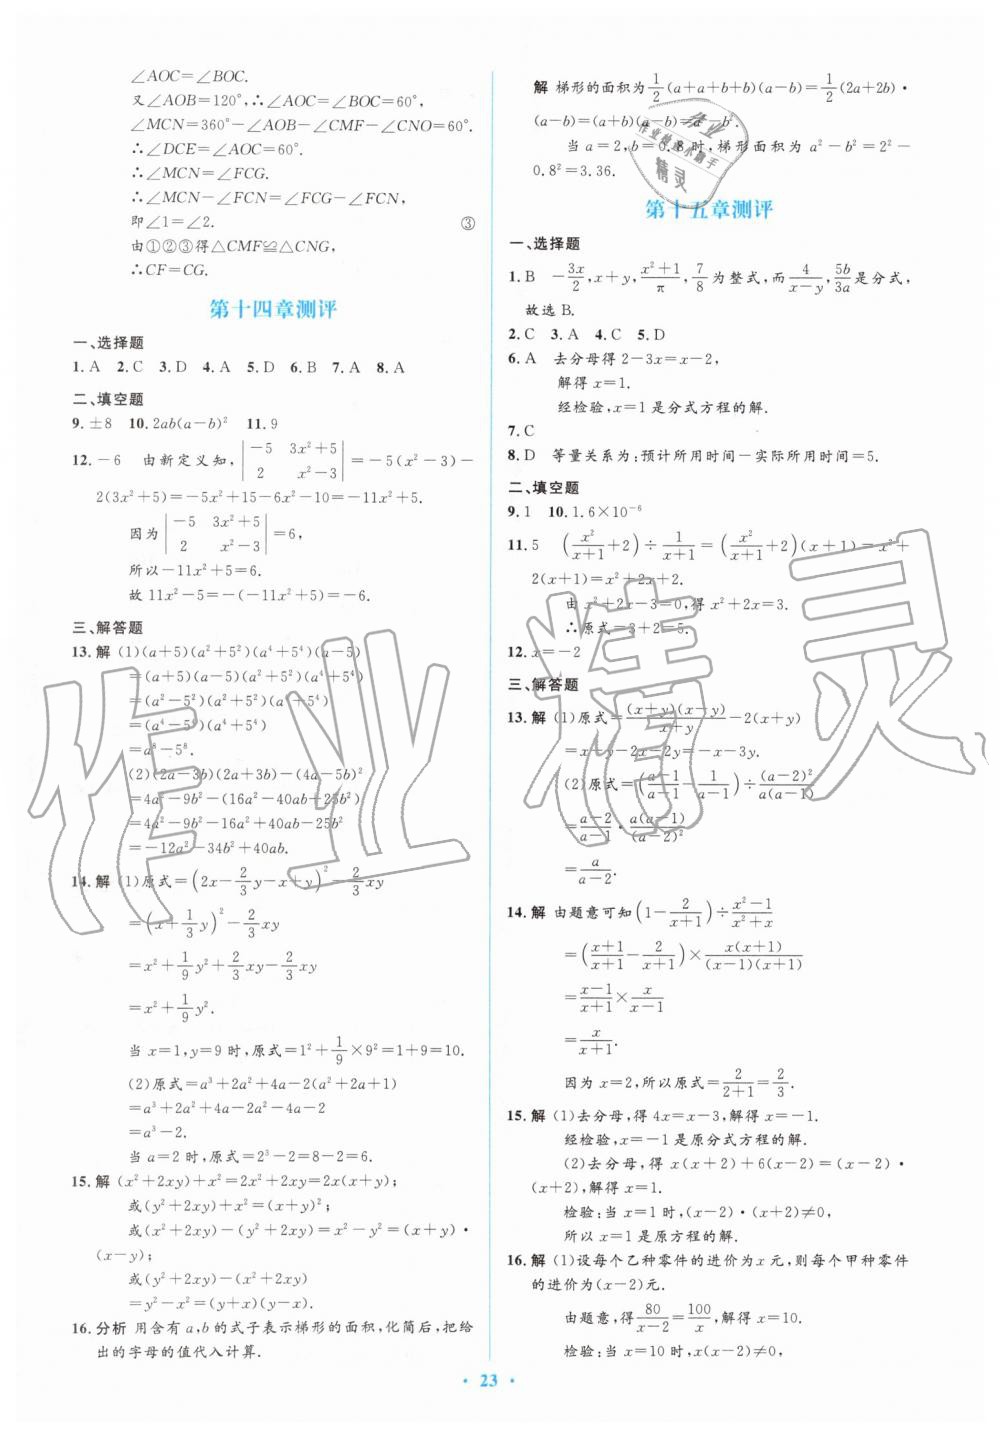 ∠AOC=∠BOC.
又∠AOB=120°,∴∠AOC=∠BOC=60°,
∠MCN=360°-∠AOB-∠CMF-∠CNO=60°.
∴∠DCE=∠AOC=60°.
∴∠MCN=∠FCG.
∴∠MCN-∠FCN=∠FCG-∠FCN,
即∠1=∠2. ③
由①②③得△CMF≌△CNG,
∴CF=CG.
第十四章测评
一、选择题
1. A 2. C 3. D 4. A 5. D 6. B 7. A 8. A
二、填空题
9. ±8 10. 2ab(a-b)² 11. 9
12. -6 由新定义知, |-5 3x²+5; 2 x²-3| =-5(x²-3)-
2(3x²+5)=-5x²+15-6x²-10=-11x²+5.
因为 |-5 3x²+5; 2 x²-3| =6,
所以-11x²+5=6.
故 11x²-5=-(-11x²+5)=-6.
三、解答题
13. 解 (1)(a+5)(a²+5²)(a⁴+5⁴)(a-5)
=(a+5)(a-5)(a²+5²)(a⁴+5⁴)
=(a²-5²)(a²+5²)(a⁴+5⁴)
=(a⁴-5⁴)(a⁴+5⁴)
=a⁸-5⁸.
(2)(2a-3b)(2a+3b)-(4a-5b)²
=4a²-9b²-(16a²-40ab+25b²)
=4a²-9b²-16a²+40ab-25b²
=-12a²-34b²+40ab.
14. 解 (1)原式=(2x-2/3 y-x+y)²-2/3 xy
=(x+1/3 y)²-2/3 xy
=x²+1/9 y²+2/3 xy-2/3 xy
=x²+1/9 y².
当 x=1,y=9 时,原式=1²+1/9×9²=1+9=10.
(2)原式=a³+2a²+4a-2(a²+2a+1)
=a³+2a²+4a-2a²-4a-2
=a³-2.
当 a=2 时,原式=2³-2=8-2=6.
15. 解 (x²+2xy)+x²=2x²+2xy=2x(x+y);
或(y²+2xy)+x²=(x+y)²;
或(x²+2xy)-(y²+2xy)=x²-y²=(x+y)·
(x-y);
或(y²+2xy)-(x²+2xy)
=y²-x²=(y+x)(y-x).
16. 分析 用含有 a,b 的式子表示梯形的面积,化简后,把给
出的字母的值代入计算.
解 梯形的面积为 1/2(a+a+b+b)(a-b)=1/2(2a+2b)·
(a-b)=(a+b)(a-b)=a²-b².
当 a=2,b=0.8 时,梯形面积为 a²-b²=2²-
0.8²=3.36.
第十五章测评
一、选择题
1. B -3x/2,x+y,(x²+1)/π,7/8 为整式,而 4/(x-y),5b/3a 是分式,
故选 B.
2. C 3. A 4. C 5. D
6. A 去分母得 2-3x=x-2,
解得 x=1.
经检验,x=1 是分式方程的解.
7. C
8. D 等量关系为:预计所用时间-实际所用时间=5.
二、填空题
9. 1 10. 1.6×10⁻⁶
11. 5 (x²/(x+1)+2)÷1/(x+1)=(x²/(x+1)+2)(x+1)=x²+
2(x+1)=x²+2x+2.
由 x²+2x-3=0,得 x²+2x=3.
∴原式=3+2=5.
12. x=-2
三、解答题
13. 解 (1)原式=(x+y)(x-y)/(x+y)-2(x+y)
=x-y-2x-2y=-x-3y.
(2)原式=((a-1)/(a-1)-1/(a-1))÷(a-2)²/a(a-1)
=(a-2)/(a-1)·a(a-1)/(a-2)²
=a/(a-2).
14. 解 由题意可知(1-2/(x+1))÷(x²-1)/(x²+x)
=((x+1)/(x+1)-2/(x+1))×x(x+1)/(x-1)(x+1)
=(x-1)/(x+1)×x/(x-1)
=x/(x+1).
因为 x=2,所以原式=2/(2+1)=2/3.
15. 解 (1)去分母,得 4x=x-3,解得 x=-1.
经检验,x=-1 是原分式方程的解.
(2)去分母,得 x(x+2)+6(x-2)=(x-2)·
(x+2),解得 x=1.
检验:当 x=1 时,(x-2)·(x+2)≠0,
所以 x=1 是原方程的解.
16. 解 (1)设每个乙种零件的进价为 x 元,则每个甲种零件
的进价为(x-2)元.
由题意,得 80/(x-2)=100/x,解得 x=10.
检验:当 x=10 时,x(x-2)≠0,
· 23 ·
作业精灵
作业
作业检查小助手
精灵